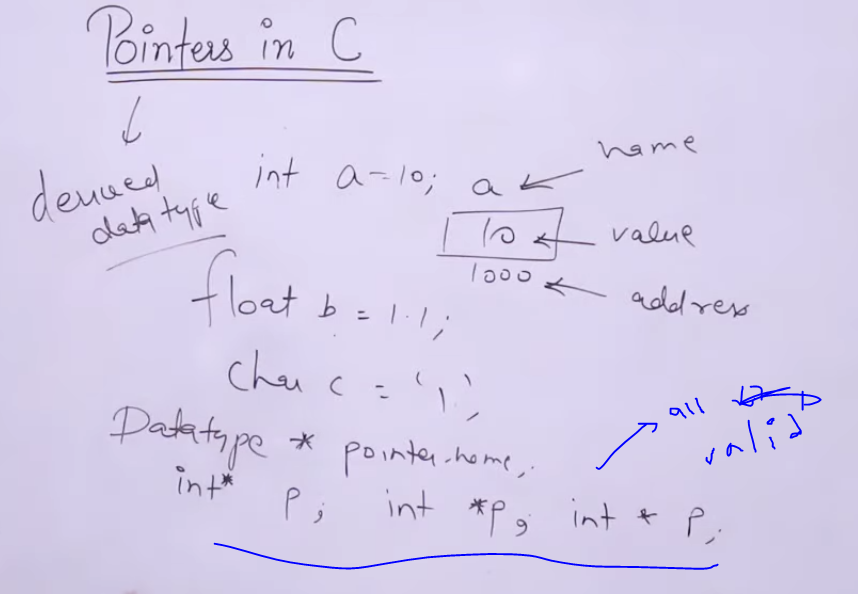 Pointers in C
derived
data type
int a=10;
a
name
10
value
1000
address
float b = 1.1;
char c = '1';
Datatype * pointer-name;
int* p; int *p; int * p;
all
valid